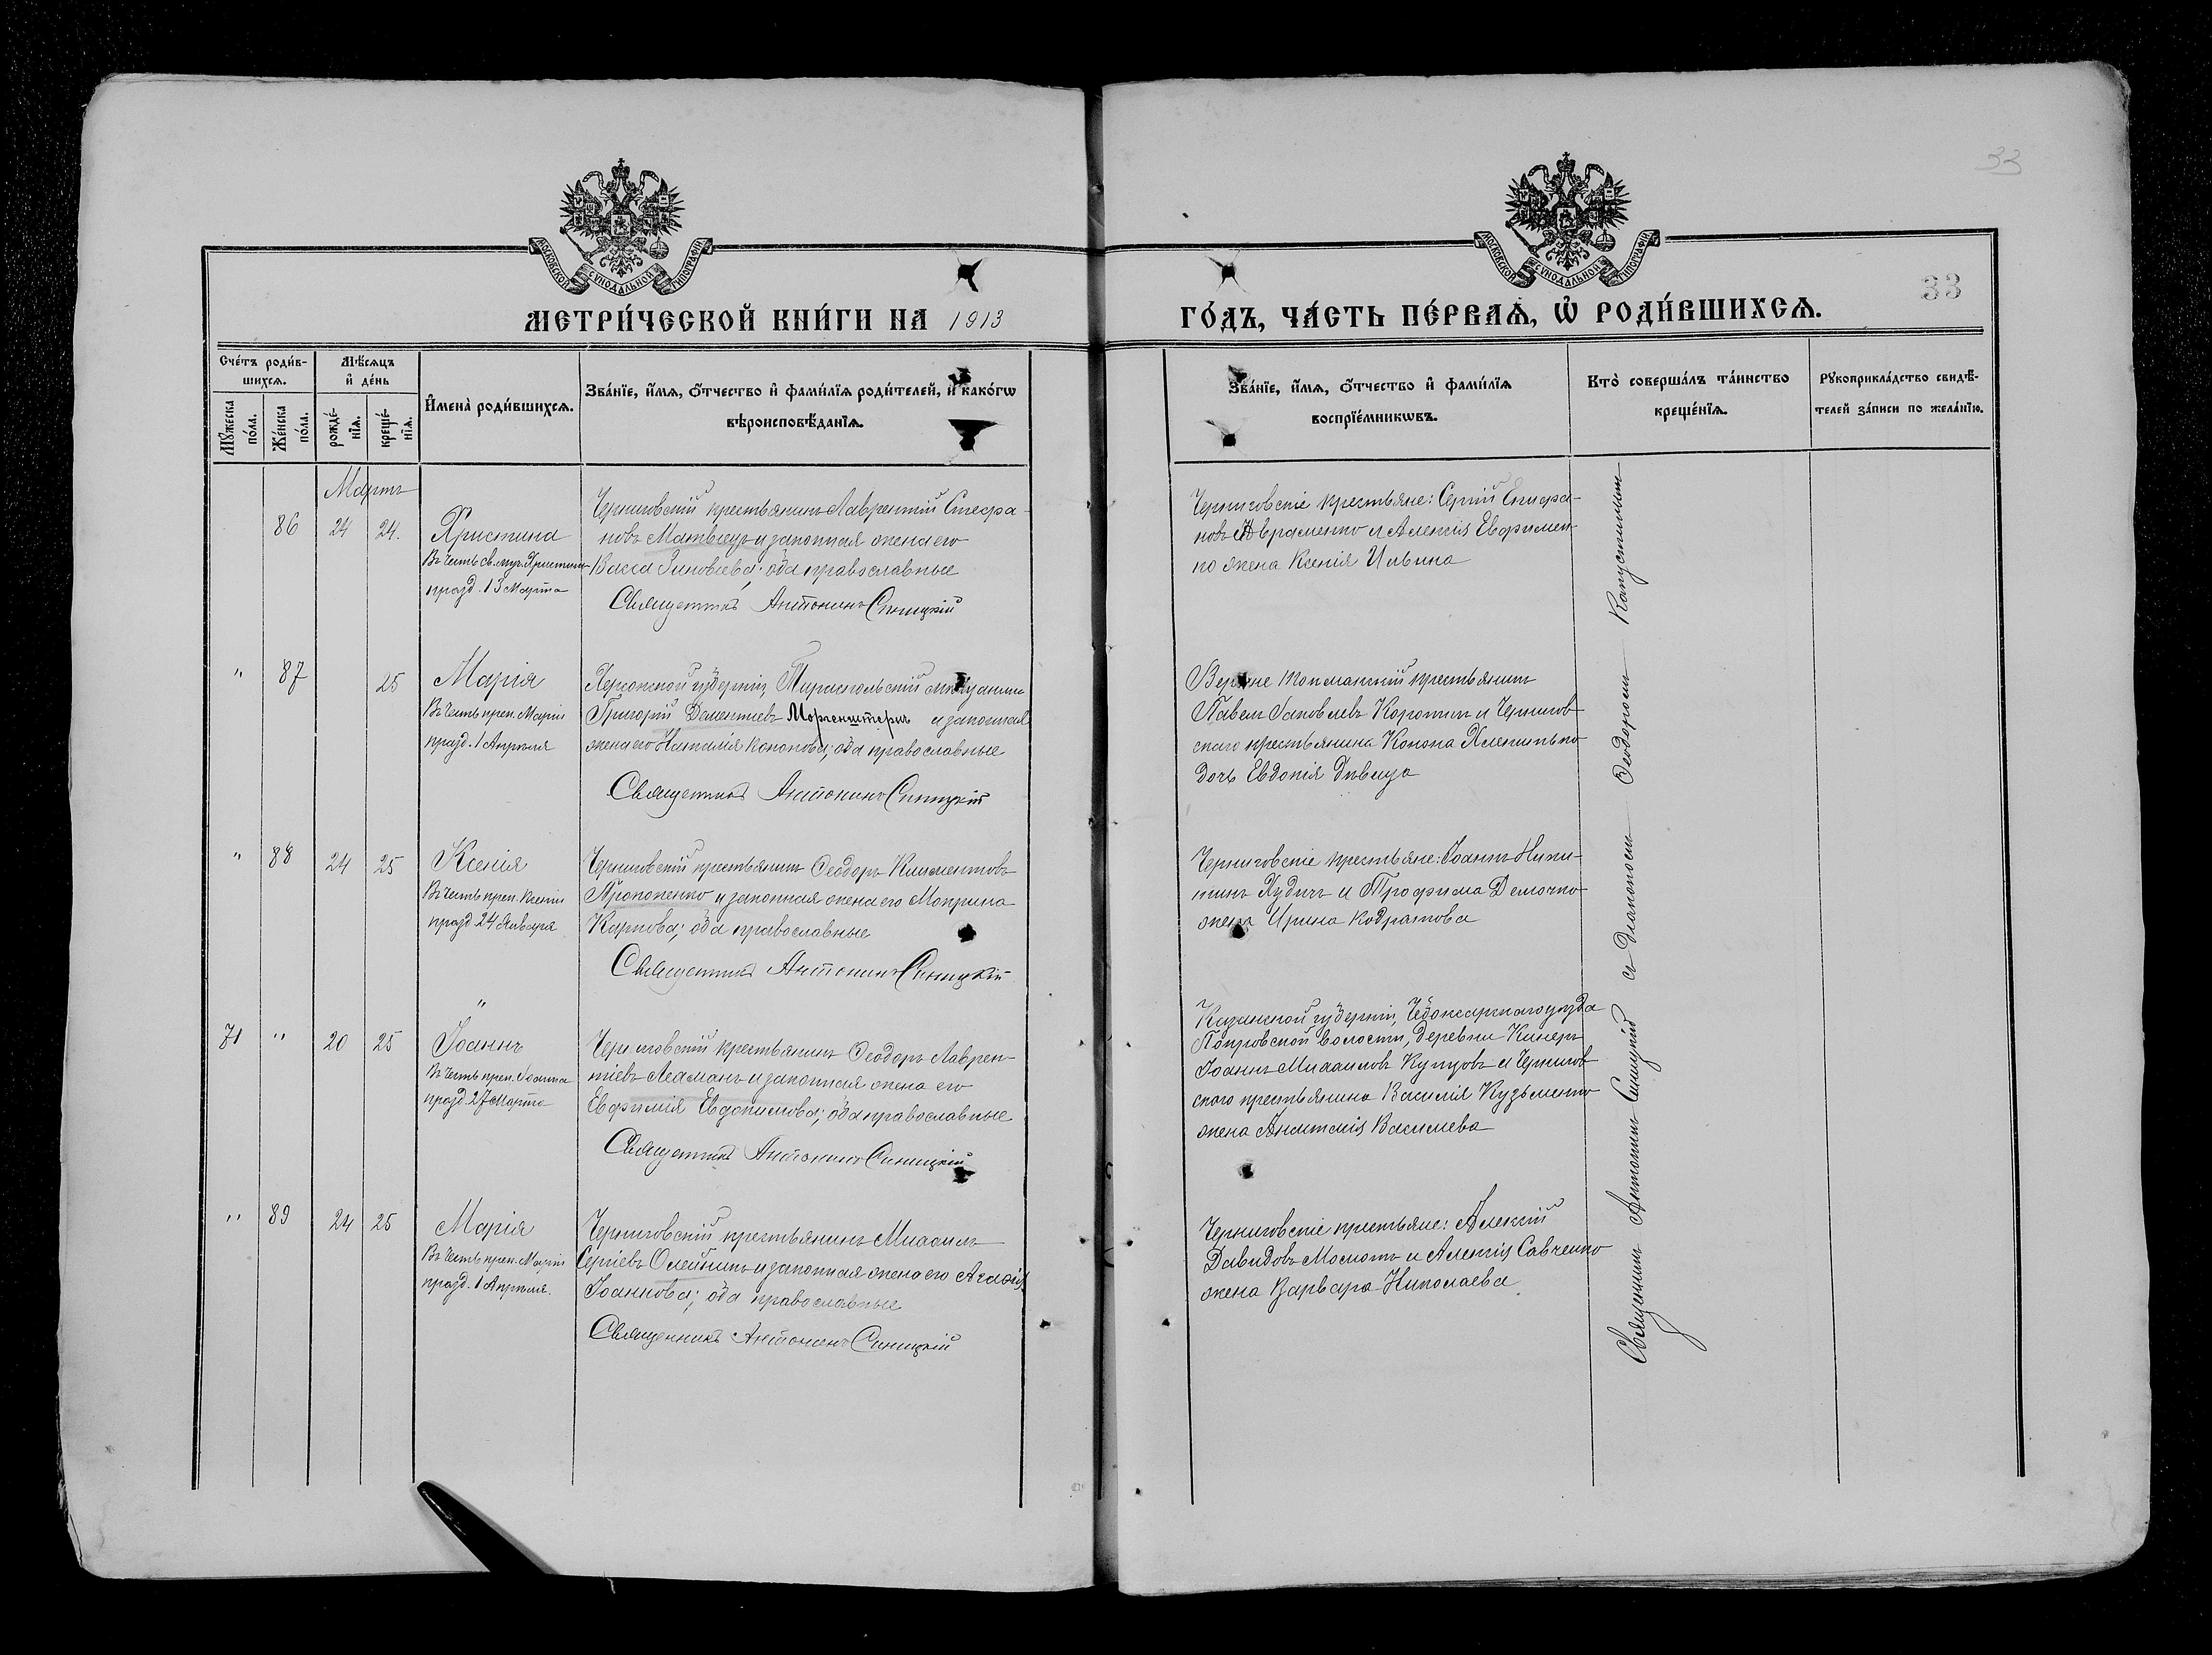 33
МОСКОВСКОЙ СУНОДАЛЬНОЙ ТИПОГРАФІИ
МОСКОВСКОЙ СУНОДАЛЬНОЙ ТИПОГРАФІИ
33
МЕТРИ́ЧЕСКОЙ КНИ́ГИ НА 1913
ГО́ДЪ, ЧА́СТЬ ПЕ́РВАѦ, Ѡ҆ РОДИ́ВШИХСѦ.
Сче́тъ роди́в-
шихсѧ.
Мѣ́сѧцъ
и҆ де́нь
Мꙋ́жеска по́ла.
Же́нска по́ла.
рожде́-
нїѧ.
креще́-
нїѧ.
И҆мена̀ роди́вшихсѧ.
Зва́нїе, и҆́мѧ, ѻ҆́тчество и҆ фами́лїѧ роди́телей, и҆ како́гѡ
вѣроисповѣ́данїѧ.
Зва́нїе, и҆́мѧ, ѻ҆́тчество и҆ фами́лїѧ
воспрїе́мникѡвъ.
Кто̀ соверша́лъ та́инство
креще́нїѧ.
Рꙋкоприкла́дство свидѣ́-
телей за́писи по жела́нїю.
Мартъ
86 24 24.
Христина
Въ честь св. муч. Христины
празд. 13 Марта
Черниговскій крестьянинъ Лаврентій Стефа-
новъ Матвіецъ и законная жена его
Васса Зиновіева; оба православные
Священникъ Антонинъ Синицкій
Черниговскіе крестьяне: Сергій Епифа-
новъ Авраменко и Алексія Евфимен-
ко жена Ксенія Ильина
" 87 25
Марія
Въ честь преп. Маріи
празд. 1 Апрѣля
Херсонской губерніи, Тираспольскій мѣщанинъ
Григорій Дементіевъ Моргенштернъ и законная
жена его Наталія Кононова; оба православные
Священникъ Антонинъ Синицкій
Верхне Токмакскій крестьянинъ
Павелъ Іаковлевъ Коротинъ и Чернигов-
скаго крестьянина Конона
дочь Евдокія дѣвица
" 88 24 25
Ксенія
Въ честь преп. Ксеніи
празд. 24 Января
Черниговскій крестьянинъ Ѳеодоръ Климентовъ
Прокопенко и законная жена его Мокрина
Карпова; оба православные
Священникъ Антонинъ Синицкій
Черниговскіе крестьяне: Іоаннъ Ники-
тинъ Худичъ и Трофима
жена Ирина Кодратова
"
71 " 20 25
Іоаннъ
Въ честь преп. Іоанна
празд. 27 Марта
Черниговскій крестьянинъ Ѳеодоръ Лаврен-
тіевъ и законная жена его
Евфимія Евдокимова; оба православные
Священникъ Антонинъ Синицкій
Казанской губерніи, Чебоксарскаго уѣзда
Покровской волости, деревни Кинеръ
Іоаннъ Михаиловъ Купцовъ и Чернигов-
скаго крестьянина Василія Кузьменко
жена Анастасія Васильева
" 89 24 25
Марія
Въ честь преп. Маріи
празд. 1 Апрѣля.
Черниговскій крестьянинъ Михаилъ
Сергіевъ Олейникъ и законная жена его
Іоаннова; оба православные
Священникъ Антонинъ Синицкій
Черниговскіе крестьяне: Алексій
Давидовъ и Алексія Савченко
жена Варвара Николаева
Священникъ Антонинъ Синицкій съ діакономъ Ѳеодоромъ Капустинымъ